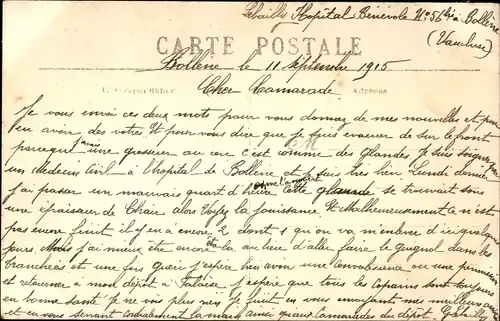 Lebailly Hopital Bénévole N° 56 bis à Bollène
(Vaucluse)
CARTE POSTALE
Bollène le 11 Septembre 1915
Cher Camarade
Correspondance
Adresse
Je vous envoi ces deux mots pour vous donnez de mes nouvelles et pour
en avoir des votres. Et pour vous dire que Je suis évacuer de sur le front
parceque j'avais une grosseur au cou c'est comme des Glandes. Je suis soigné par
un Médecin Civil à l'hopital de Bollène et je suis très bien. Lundi dernier
j'ai passer un mauvais quart d'heure cette glande se trouvait sous
une épaisseur de Chair alors Voyez la jouissance. Et Malheureusement ce n'est
pas encore finit il y en a encore 2 dont 1 qui on va m'enlevé d'ici quelques
jours. Mais j'ai mieux être encore là au lieu d'aller faire le guignol dans les
tranchées et une fois guéri j'espère bien avoir une convalescence ou une permission
et retourner à mon dépôt à Falaise. J'espère que tous les copains sont toujours
en bonne santé. Je ne vois plus rien. Je finit en vous envoyant mes meilleurs
et en vous serrant cordialement la main ainsi qu'aux camarades du dépôt.